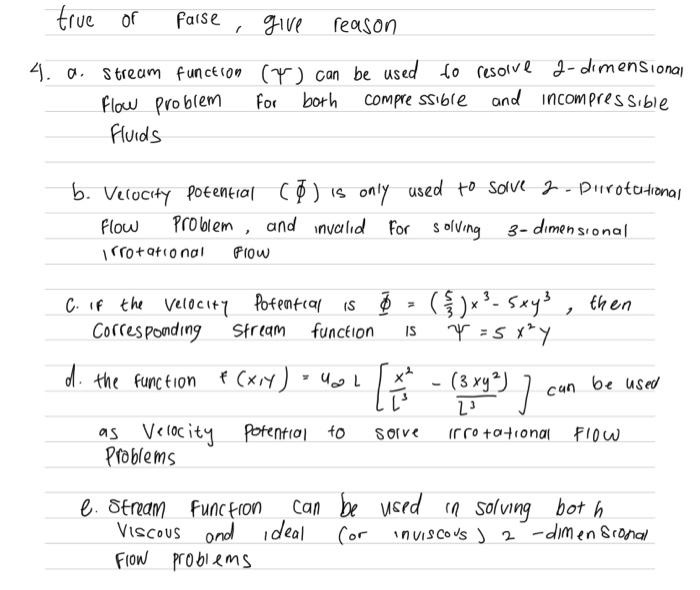 true or false, give reason
4. a. stream function (Ψ) can be used to resolve 2-dimensional
flow problem for both compressible and incompressible
fluids
b. Velocity potential (Φ) is only used to solve 2-D irrotational
flow problem, and invalid for solving 3-dimensional
irrotational flow
c. if the velocity Potential is Φ = (5/3)x³ - 5xy³, then
Corresponding stream function is Ψ = 5x²y
d. the function f(x,y) = u∞ L [x²/L³ - (3xy²)/L³] can be used
as velocity potential to solve irrotational flow
Problems
e. stream function can be used in solving both
Viscous and ideal (or inviscous) 2-dimensional
Flow problems